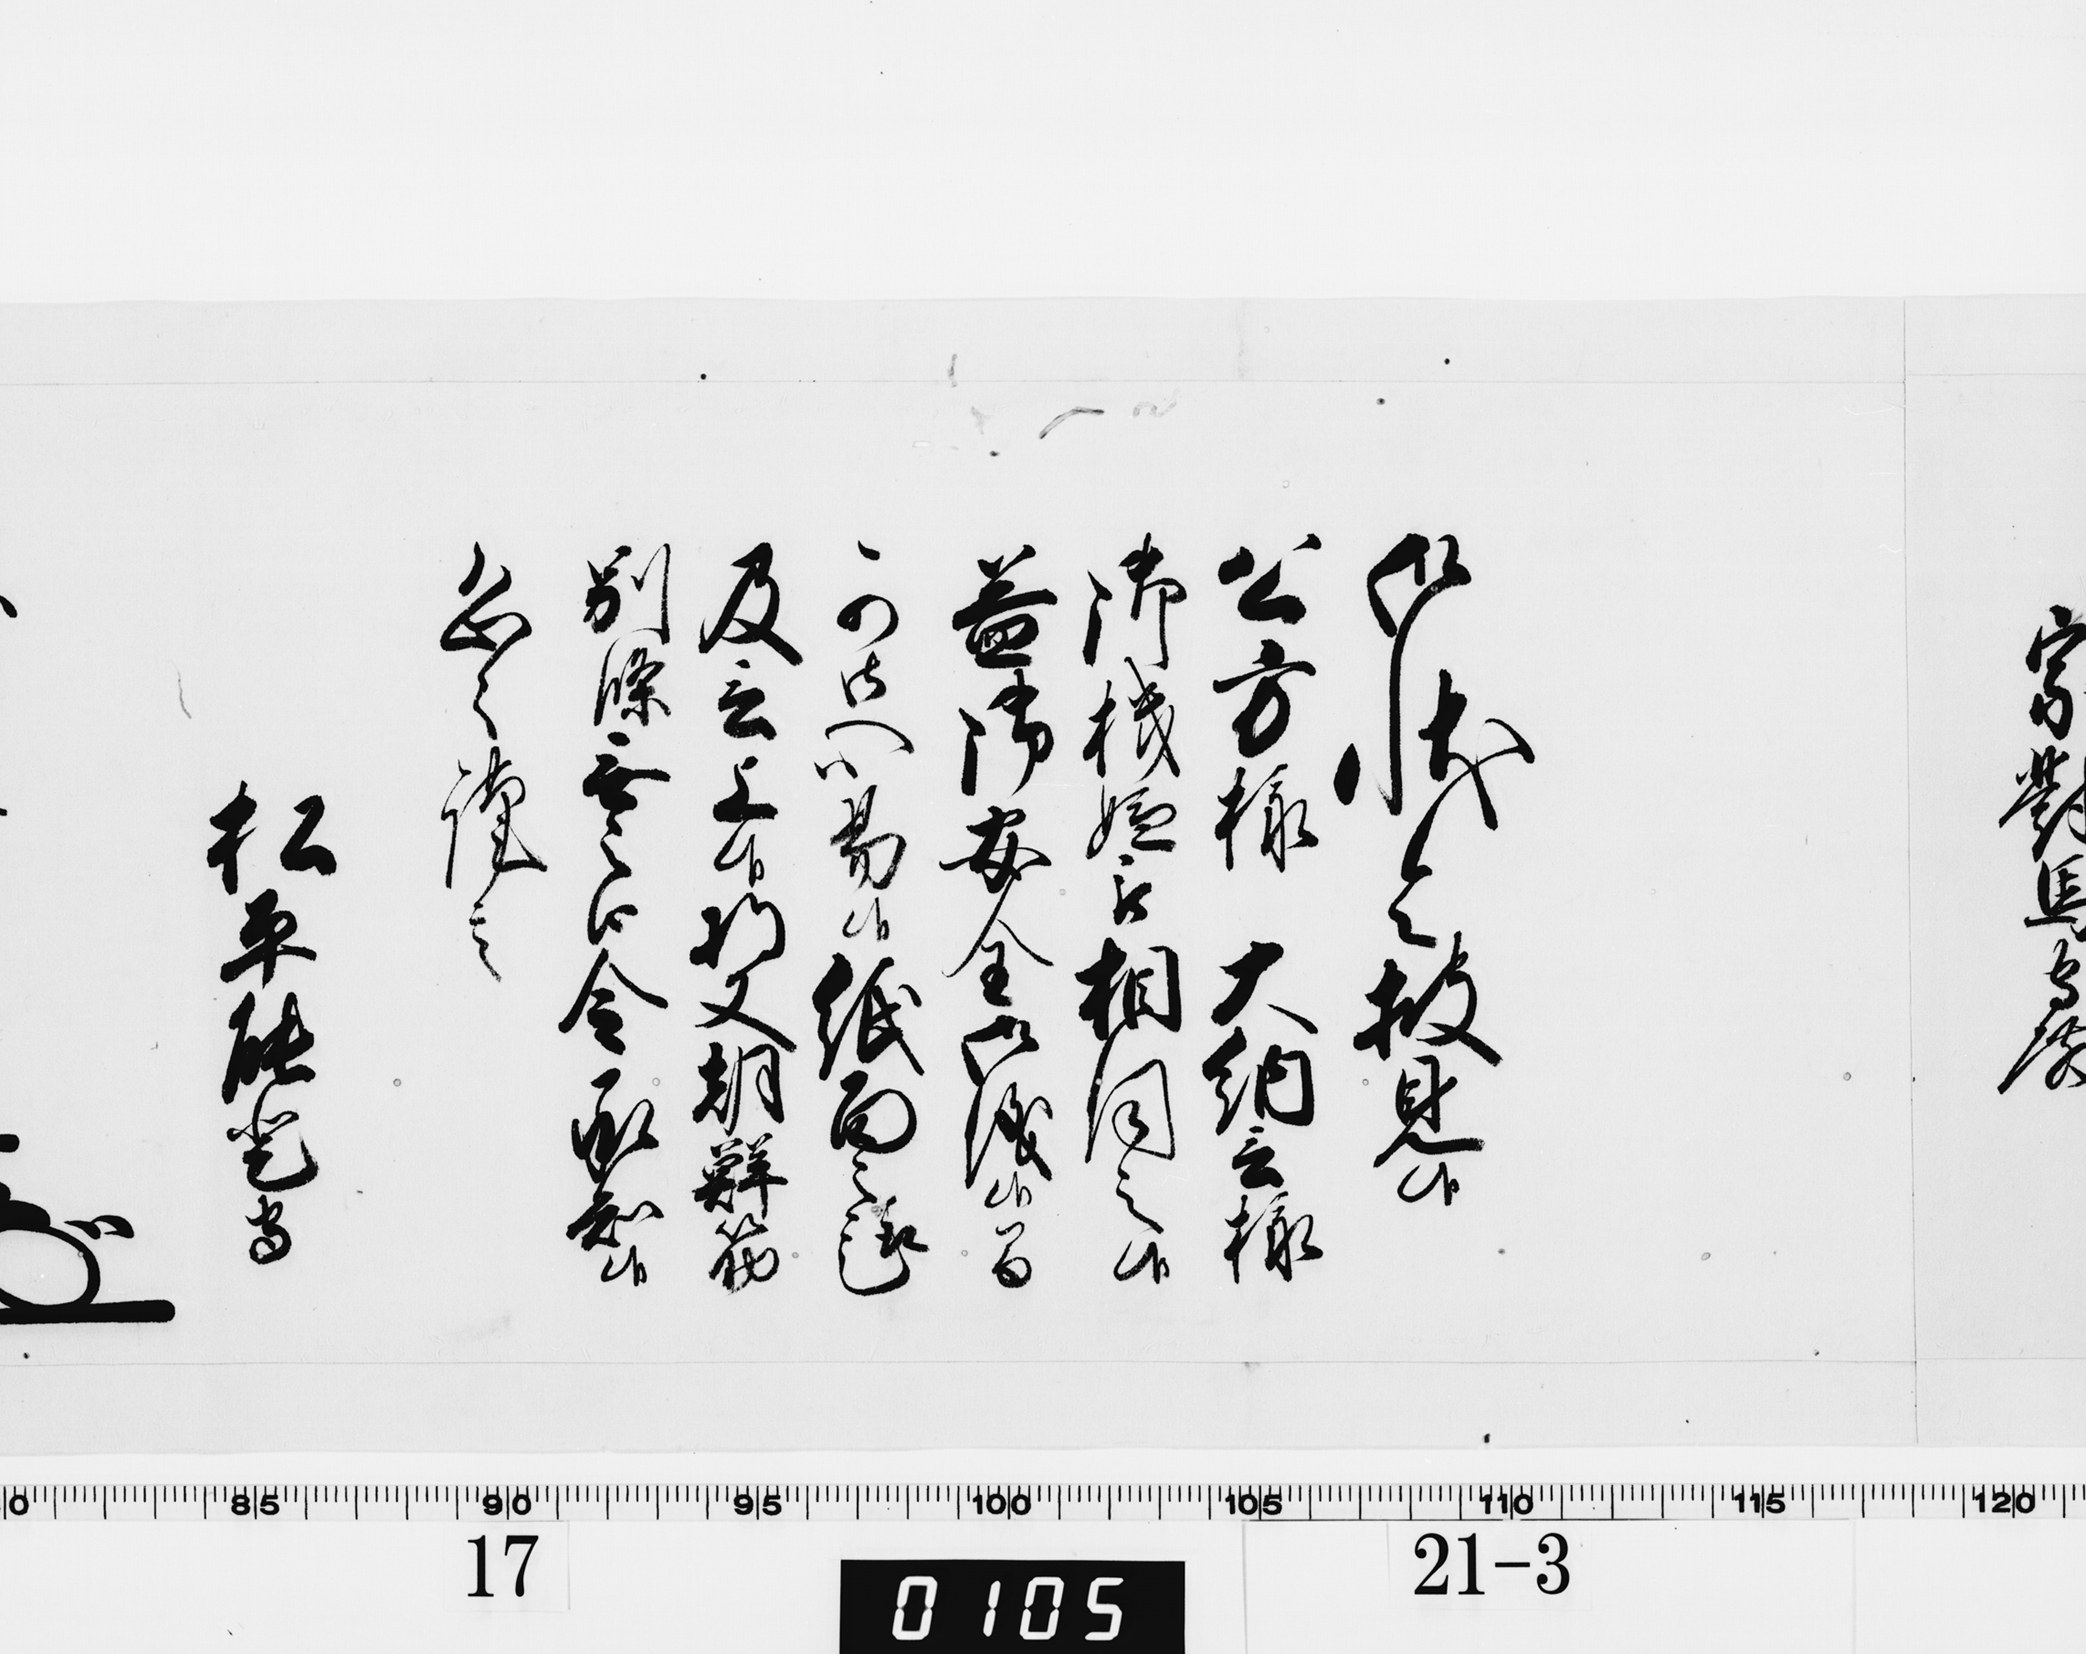 宗對馬守殿
御状令披見候
公方様 大納言様
御機嫌被相伺之候
益御安全御儀候間
可御心易候紙面之趣
及言上候将又朝鮮筋
別條無之由令承知候
恐々謹言
松平能登守
85 90 95 100 105 110 115 120
17
0105
21-3